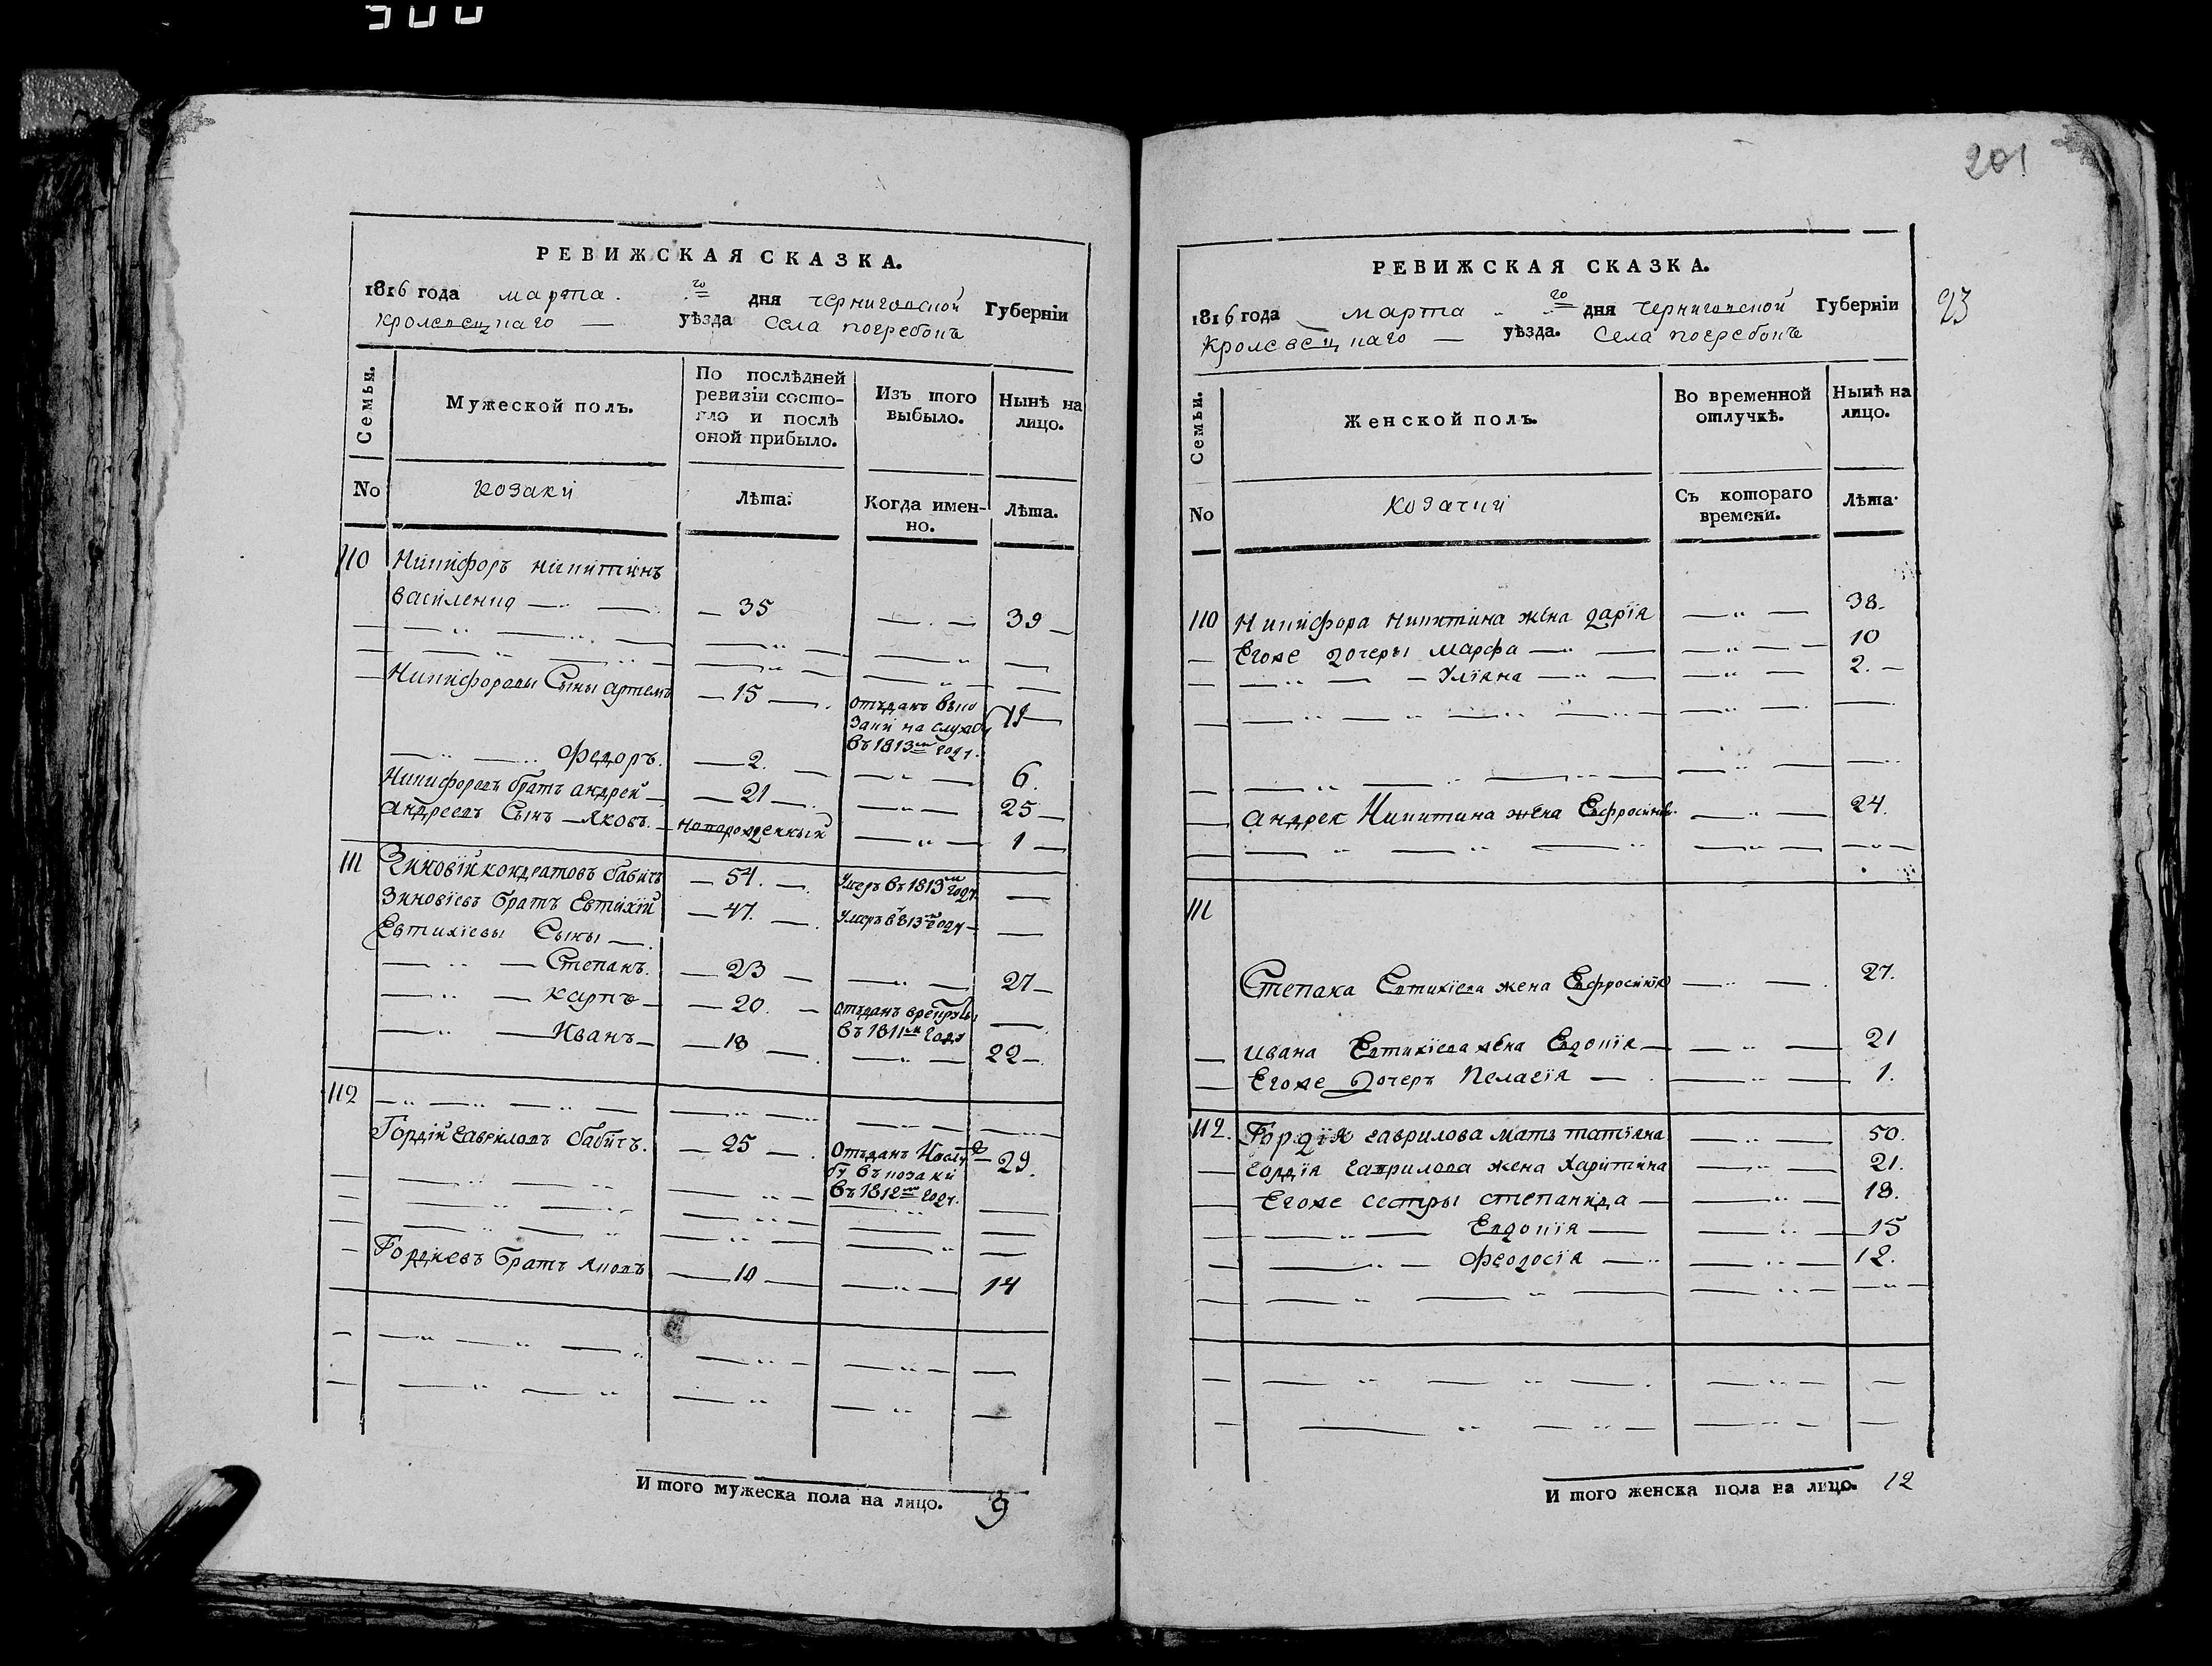 900
201
РЕВИЖСКАЯ СКАЗКА.
1816 года марта го дня черниговской Губерніи
кролевецкаго уѣзда Села погребокъ
Семьи.
Мужеской полъ.
По послѣдней ревизіи состояло и послѣ оной прибыло.
Изъ того выбыло.
Нынѣ на лицо.
No
козаки
Лѣта.
Когда именно.
Лѣта.
110 Никифоръ никитинъ
василенко — 35 — 39
Никифоровы Сыны артемъ — 15 отъданъ въко
заки на службу
въ 1813м году.
Федоръ. — 2. — 6.
Никифоровъ братъ андрей — 21 — 25
андреевъ Сынъ — Яковъ. новорожденный — 1
111 Зиновій кондратовъ бабичъ — 54. — Умеръ въ 1813м году
Зиновіевъ братъ Евтихій — 47. — Умеръ в 813м году
Евтихіевы Сыны
Степанъ. — 23 — 27
карпъ — 20. — отъданъ врекруты
въ 1811м году
Иванъ — 18 — 22
112
Гордій гавриловъ бабичъ. — 25 — Отъданъ Наслуж
бу въ козаки — 29.
въ 1812м году.
Гордиевъ братъ яковъ — 10 — 14
И того мужеска пола на лицо. 9
РЕВИЖСКАЯ СКАЗКА.
93
1816 года марта го дня черниговской Губерніи
Кролевецкаго уѣзда. Села погребокъ
Семьи.
Женской полъ.
Во временной отлучкѣ.
Нынѣ на лицо.
No
козачки
Съ котораго времени.
Лѣта.
110 Никифора никитина жена дарія 38.
Егоже дочеры марфа 10
Уліяна 2.
андрея Никитина жена Ефросинія 24.
111
Степана Евтихіева жена Ефросинія 27.
ивана Евтихіева жена Евдокія 21
Егоже дочерь Пелагія 1.
112. Гордія гаврилова мать татіяна 50.
гордія гаврилова жена Харитина 21.
Егоже сестры степанида 18.
Евдокія 15
Феодосія 12.
И того женска пола на лицо. 12